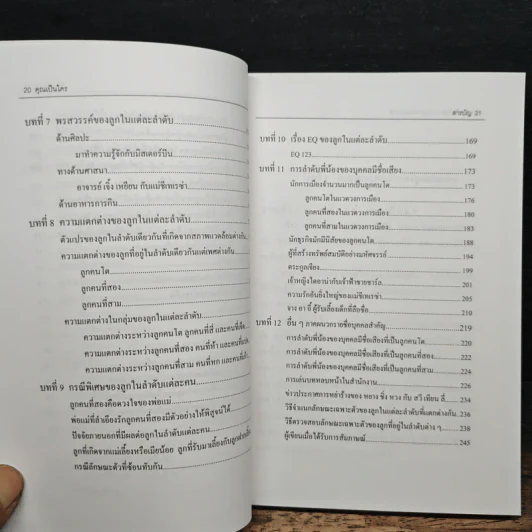 20 คุณเป็นใคร
บทที่ 7 พรสวรรค์ของลูกในแต่ละลำดับ
ด้านศิลปะ
มาทำความรู้จักกับมิสเตอร์บีน
ทางด้านศาสนา
อาจารย์ เจิ้ง เหยียน กับแม่ชีเทเรซ่า
ด้านอาหารการกิน
บทที่ 8 ความแตกต่างของลูกในแต่ละลำดับ
ตัวแปรของลูกในลำดับเดียวกันที่เกิดจากสภาพแวดล้อมต่างกัน
ความแตกต่างของลูกที่อยู่ในลำดับเดียวกันแต่เพศต่างกัน
ลูกคนโต
ลูกคนที่สอง
ลูกคนที่สาม
ความแตกต่างในกลุ่มของลูกในแต่ละลำดับ
ความแตกต่างระหว่างลูกคนโต ลูกคนที่สี่ และคนที่
ความแตกต่างระหว่างลูกคนที่สอง คนที่ห้า และคนที่
ความแตกต่างระหว่างลูกคนที่สาม คนที่หก และคนที่
บทที่ 9 กรณีพิเศษของลูกในลำดับแต่ละคน
ลูกคนที่สองคือดวงใจของพ่อแม่
พ่อแม่ที่ลำเอียงรักลูกคนที่สองมีตัวอย่างให้พิสูจน์ได้
ปัจจัยภายนอกที่มีผลต่อลูกในลำดับแต่ละคน
ลูกที่เกิดจากแม่เลี้ยงหรือเมียน้อย ลูกที่รับมาเลี้ยงกับลูก
กรณีลักษณะตัวที่ซ้อนทับกัน
สารบัญ 21
บทที่ 10 เรื่อง EQ ของลูกในแต่ละลำดับ 169
EQ 123 169
บทที่ 11 การลำดับพี่น้องของบุคคลมีชื่อเสียง 173
นักการเมืองจำนวนมากเป็นลูกคนโต 173
ลูกคนโตในแวดวงการเมือง 176
ลูกคนที่สองในแวดวงการเมือง 180
ลูกคนที่สามในแวดวงการเมือง 183
นักธุรกิจมักมีนิสัยของลูกคนโต 188
ผู้ที่สร้างทรัพย์สมบัติอย่างมหัศจรรย์ 194
ตระกูลเจียง 199
เจ้าหญิงไดอาน่ากับเจ้าฟ้าชายชาร์ล 201
ความรักอันยิ่งใหญ่ของแม่ชีเทเรซ่า 205
จาง อา อี๋ ผู้รับเลี้ยงเด็กที่ลือชื่อ 208
บทที่ 12 อื่น ๆ ภาคผนวกรายชื่อบุคคลสำคัญ 219
การลำดับพี่น้องของบุคคลมีชื่อเสียงที่เป็นลูกคนโต 219
การลำดับพี่น้องของบุคคลมีชื่อเสียงที่เป็นลูกคนที่สอง 222
การลำดับพี่น้องของบุคคลมีชื่อเสียงที่เป็นลูกคนที่สาม 224
การเล่นบททดสอบหน้าในสำนักงาน 227
ข่าวประกาศการหย่าร้างของ หยาง ซิ่ง หวง กับ สวี เทียน 234
วิธีจำแนกลักษณะเฉพาะตัวของลูกในแต่ละลำดับที่แตกต่างกัน 236
วิธีตรวจสอบลักษณะเฉพาะตัวของลูกที่อยู่ในลำดับต่าง ๆ 238
ผู้เขียนเมื่อได้รับการสัมภาษณ์ 245